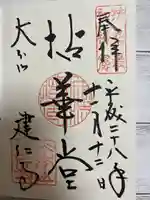 奉拝
平成二十八年
十一月十二日
拈華堂
大本山
建仁寺